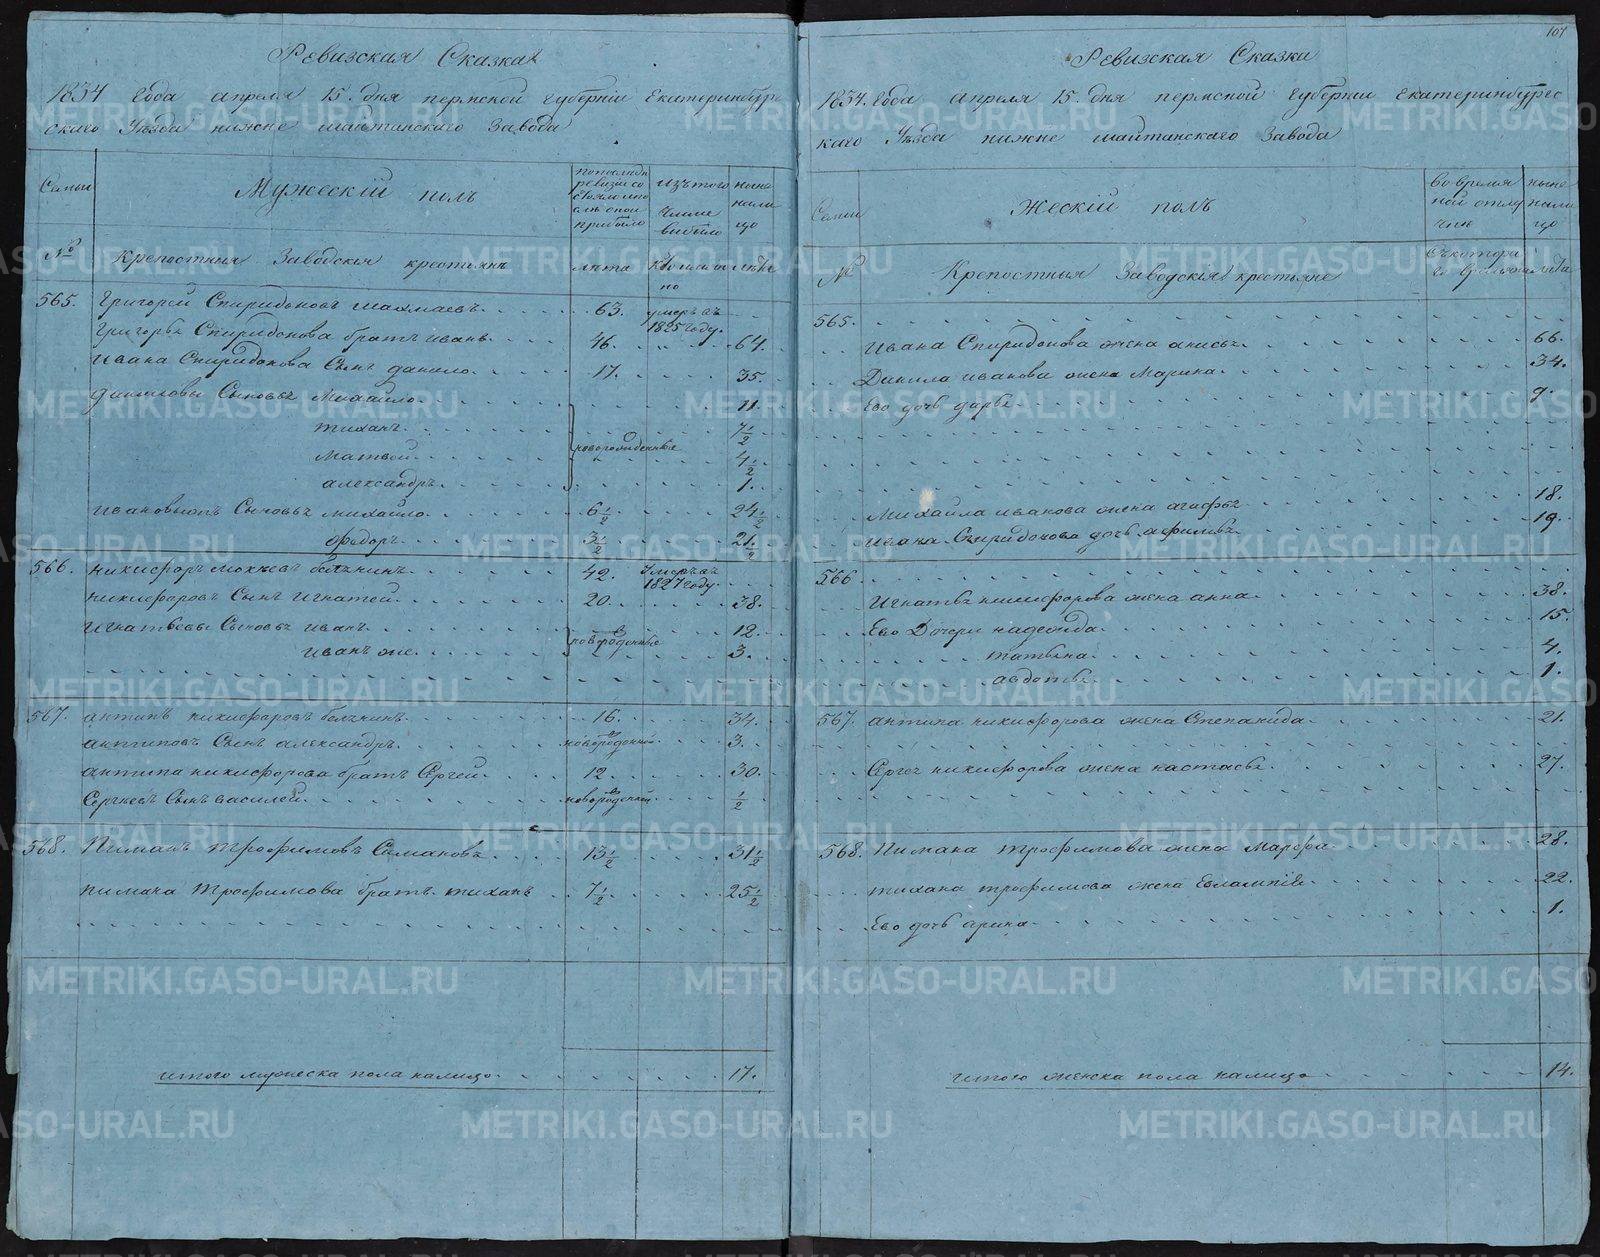 Ревизская Сказка
1834 года апреля 15. дня пермской губерніи Екатеринбург
скаго Уезда нижне шайтанскаго Завода
Семьи
Мужескій полъ
по последн ревизіи состояло и после оной прибыло
изъ того числе выбыло
ныне на лицо
№
Крепостныя Заводскія крестьянъ
лета
лета
565. Григорей Спиридоновъ 63. умеръ въ 1825 году.
Григорья Спиридонова братъ иванъ 46. 64.
ивана Спиридонова Сынъ данило 17. 35.
даниловы Сыновья Михайло 11
тиханъ 7 1/2
новорожденные
Матвей 4 1/2
александръ 1.
ивановыхъ Сыновья михайло 6 1/2 24 1/2
федоръ 3 1/2 21 1/2
566. никифоръ 42. Умеръ въ 1827 году.
никифоровъ Сынъ Игнатей 20. 38.
Игнатьевы Сыновья иванъ 12.
новорожденные
иванъ же 3.
567. антипъ никифоровъ 16. 34.
антиповъ Сынъ александръ новорожденной 3.
антипа никифорова братъ Сергей 12. 30.
Сергеевъ Сынъ василей новорожденной 1/2
568. Пиманъ трофимовъ 13 1/2 31 1/2
пимана трофимова братъ тиханъ 7 1/2 25 1/2
итого мужеска пола налицо 17.
107
Ревизская Сказка
1834 года апреля 15. дня пермской губерніи Екатеринбургс
каго Уезда нижне шайтанскаго Завода
Семьи
Жескій полъ
во время ной отлу чки
ныне на ли цо
№
Крепостныя Заводскія крестьяне
съ котора го времени
лета
565.
Ивана Спиридонова жена анисья 66.
Данила иванова жена Марина 34.
Ево дочь дарья 9.
Михайла иванова жена агафья 18.
ивана Спиридонова дочь 19.
566
Игнатья никифорова жена анна 38.
Ево Дочери надежда 15.
татьяна 4.
авдотья 1.
567. антипа никифорова жена Степанида 21.
Сергея никифорова жена настасья 27.
568. Пимана трофимова жена Марфа 28.
тихана трофимова жена Евлампія 22.
Ево дочь арина 1.
итого женска пола налицо 14.
METRIKI.GASO-URAL.RU